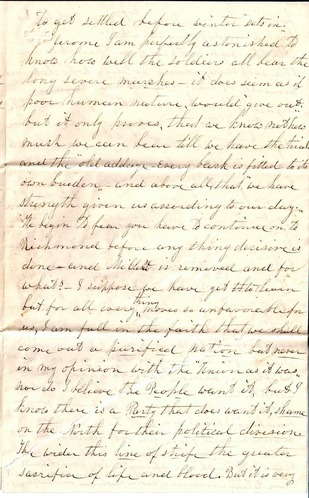 To get settled before winter sets in.
Jerome I am perfectly astonished to
know how well the soldiers all bear the
long severe marshes - it does seem as if
poor human nature, would give out,
but it only proves, that we know not how
much we can bear till we have the trial
and the "old addage - Every back is fitted to its
own burden," and above all, that "we have
strength given us according to our day."
We begin to fear you have to continue on to
Richmond before any thing decisive is
done - and is removed and for
what? - I suppose we have yet to learn
but for all every thing moves so unfavorable for
us, I am full in the faith that we shall
come out a purified nation but never
in my opinion with the "Union as it was"
nor do I believe the People want it, but I
know there is a Party that does want it, shame
on the North for their political division
The wider this line of strife the greater
sacrifice of life and blood. But it is very